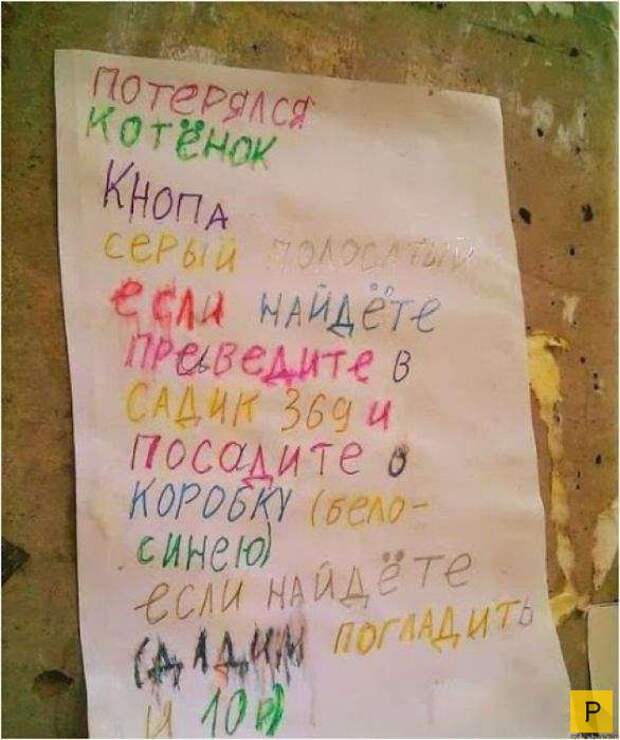 ПОТЕРЯЛСЯ
КОТЁНОК
КНОПА
СЕРЫЙ ПОЛОСАТЫЙ
ЕСЛИ НАЙДЁТЕ
ПРЕВЕДИТЕ В
САДИК 369 И
ПОСАДИТЕ В
КОРОБКУ (бело-
синею)
если НАЙДЁТЕ
(ДАДИМ ПОГЛАДИТЬ
И 10р)
P